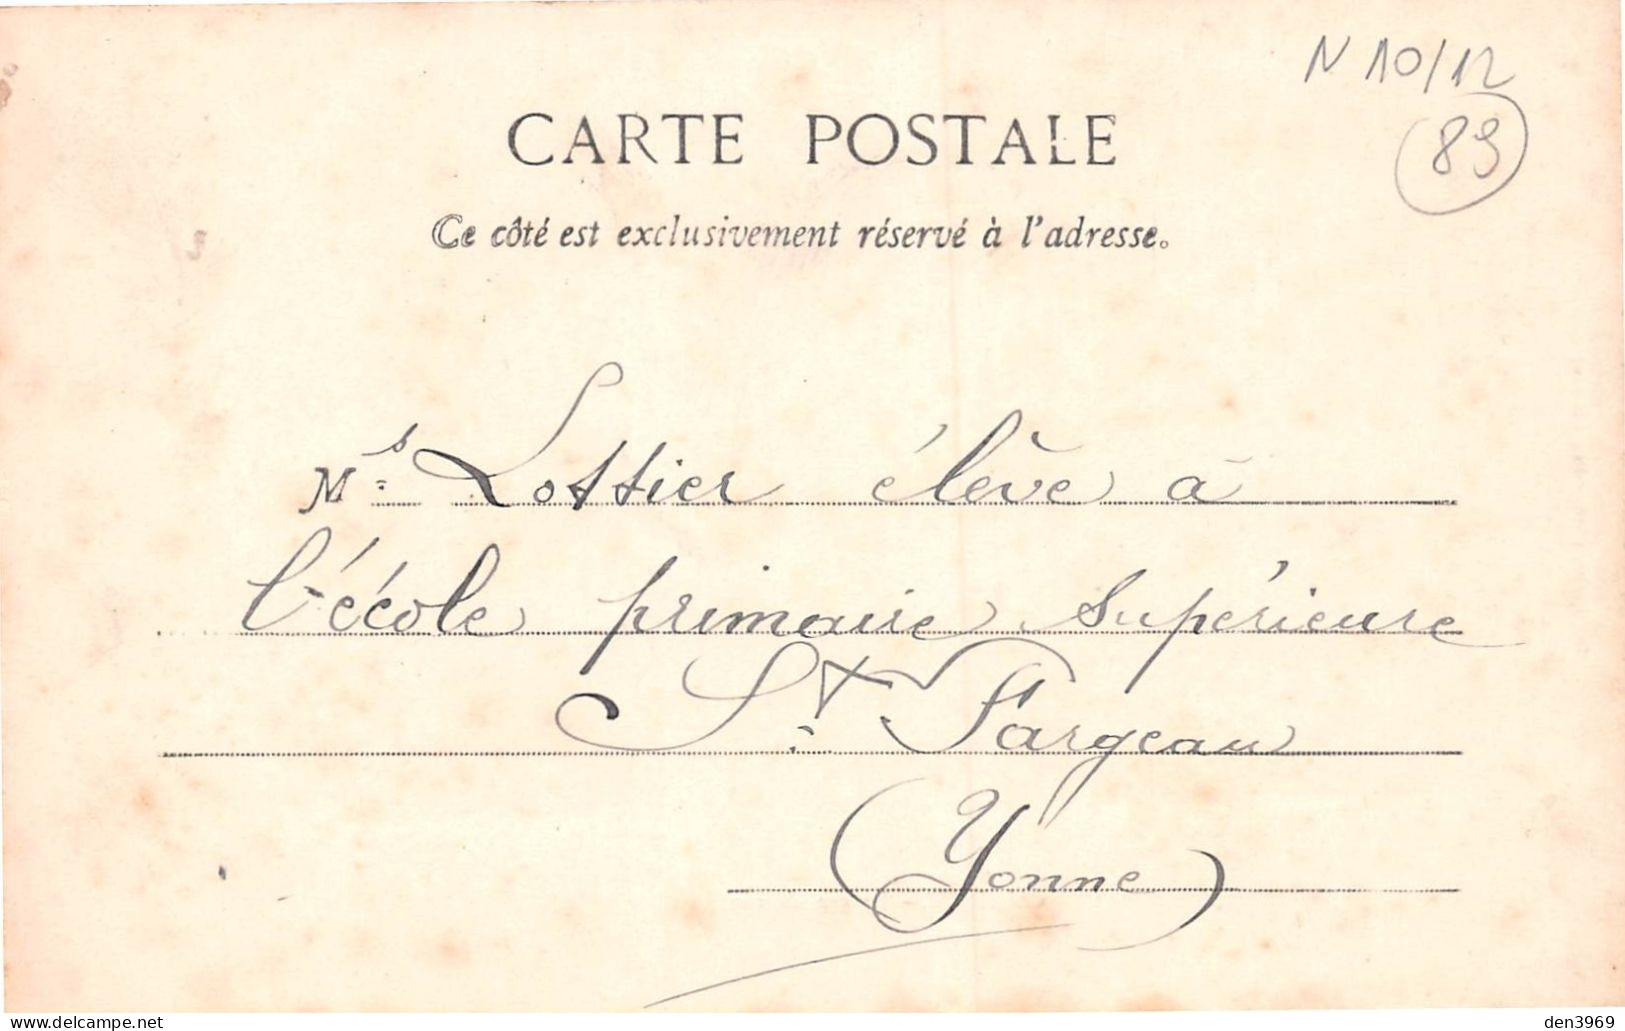 N 10/12
89
CARTE POSTALE
Ce côté est exclusivement réservé à l'adresse.
Ms Lottier élève à
l'école primaire supérieure
St Fargeau
(Yonne)
den3969